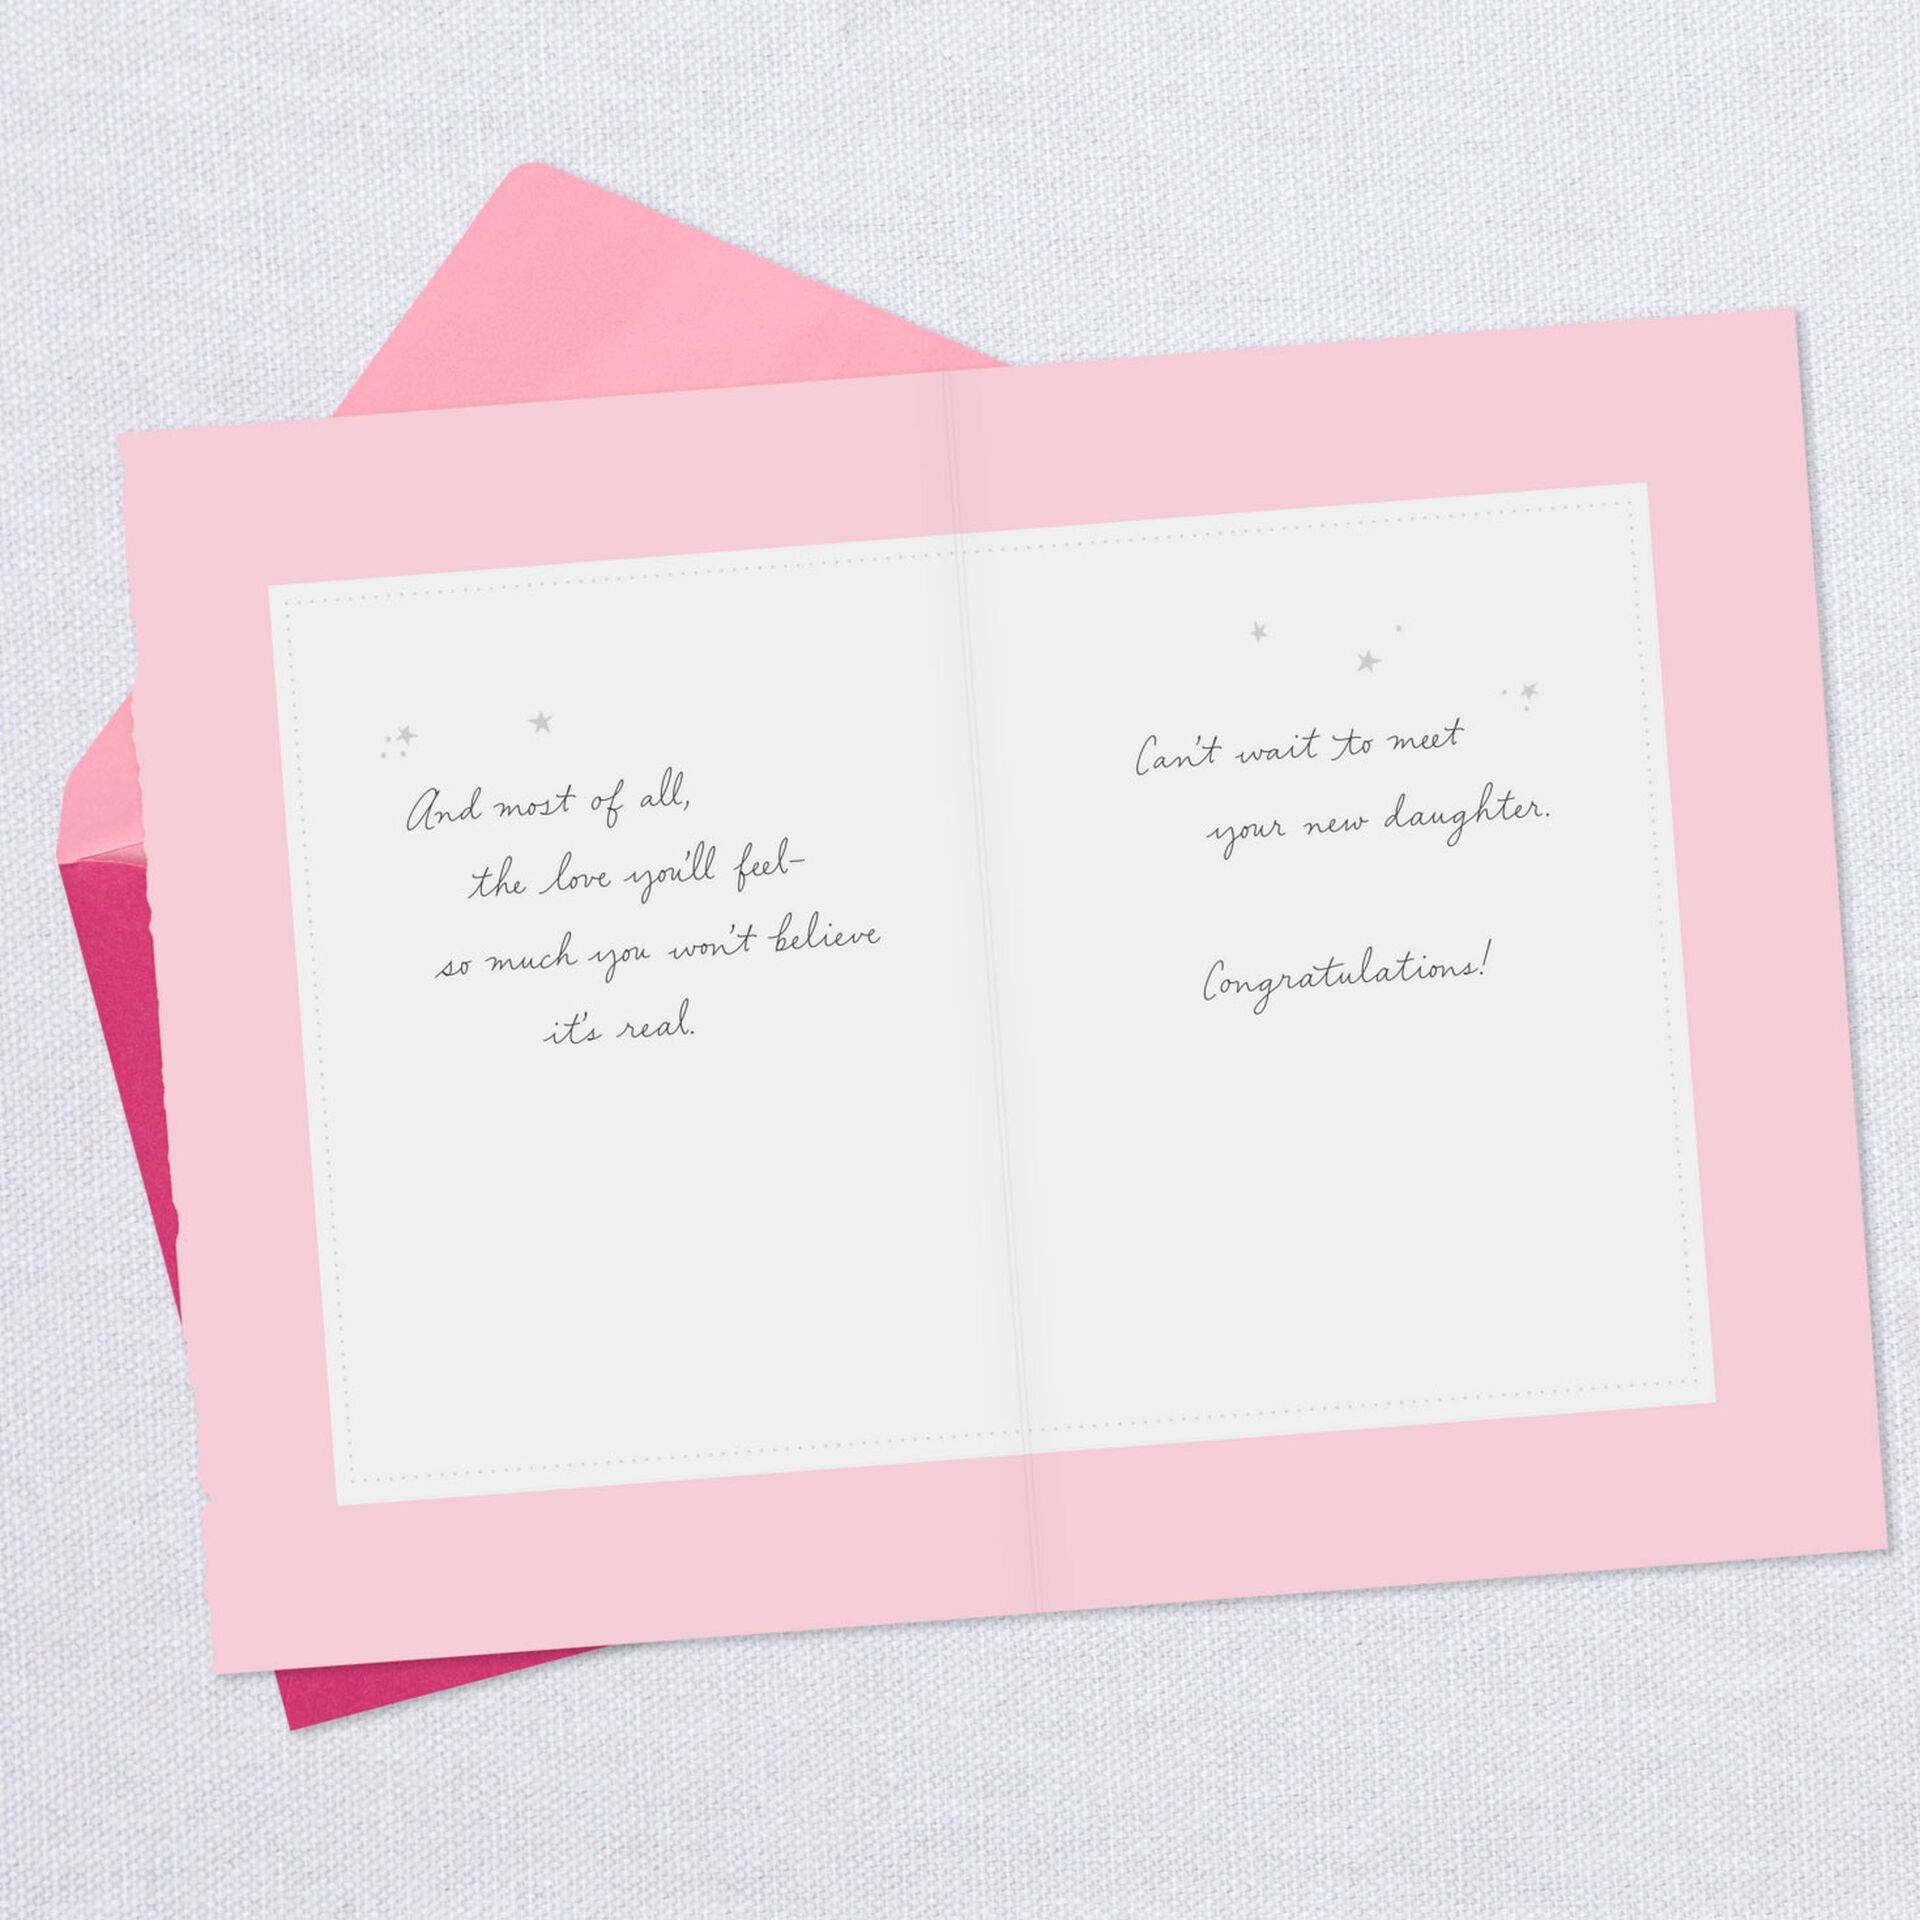 And most of all,
the love you'll feel–
so much you won't believe
it's real.
Can't wait to meet
your new daughter.
Congratulations!